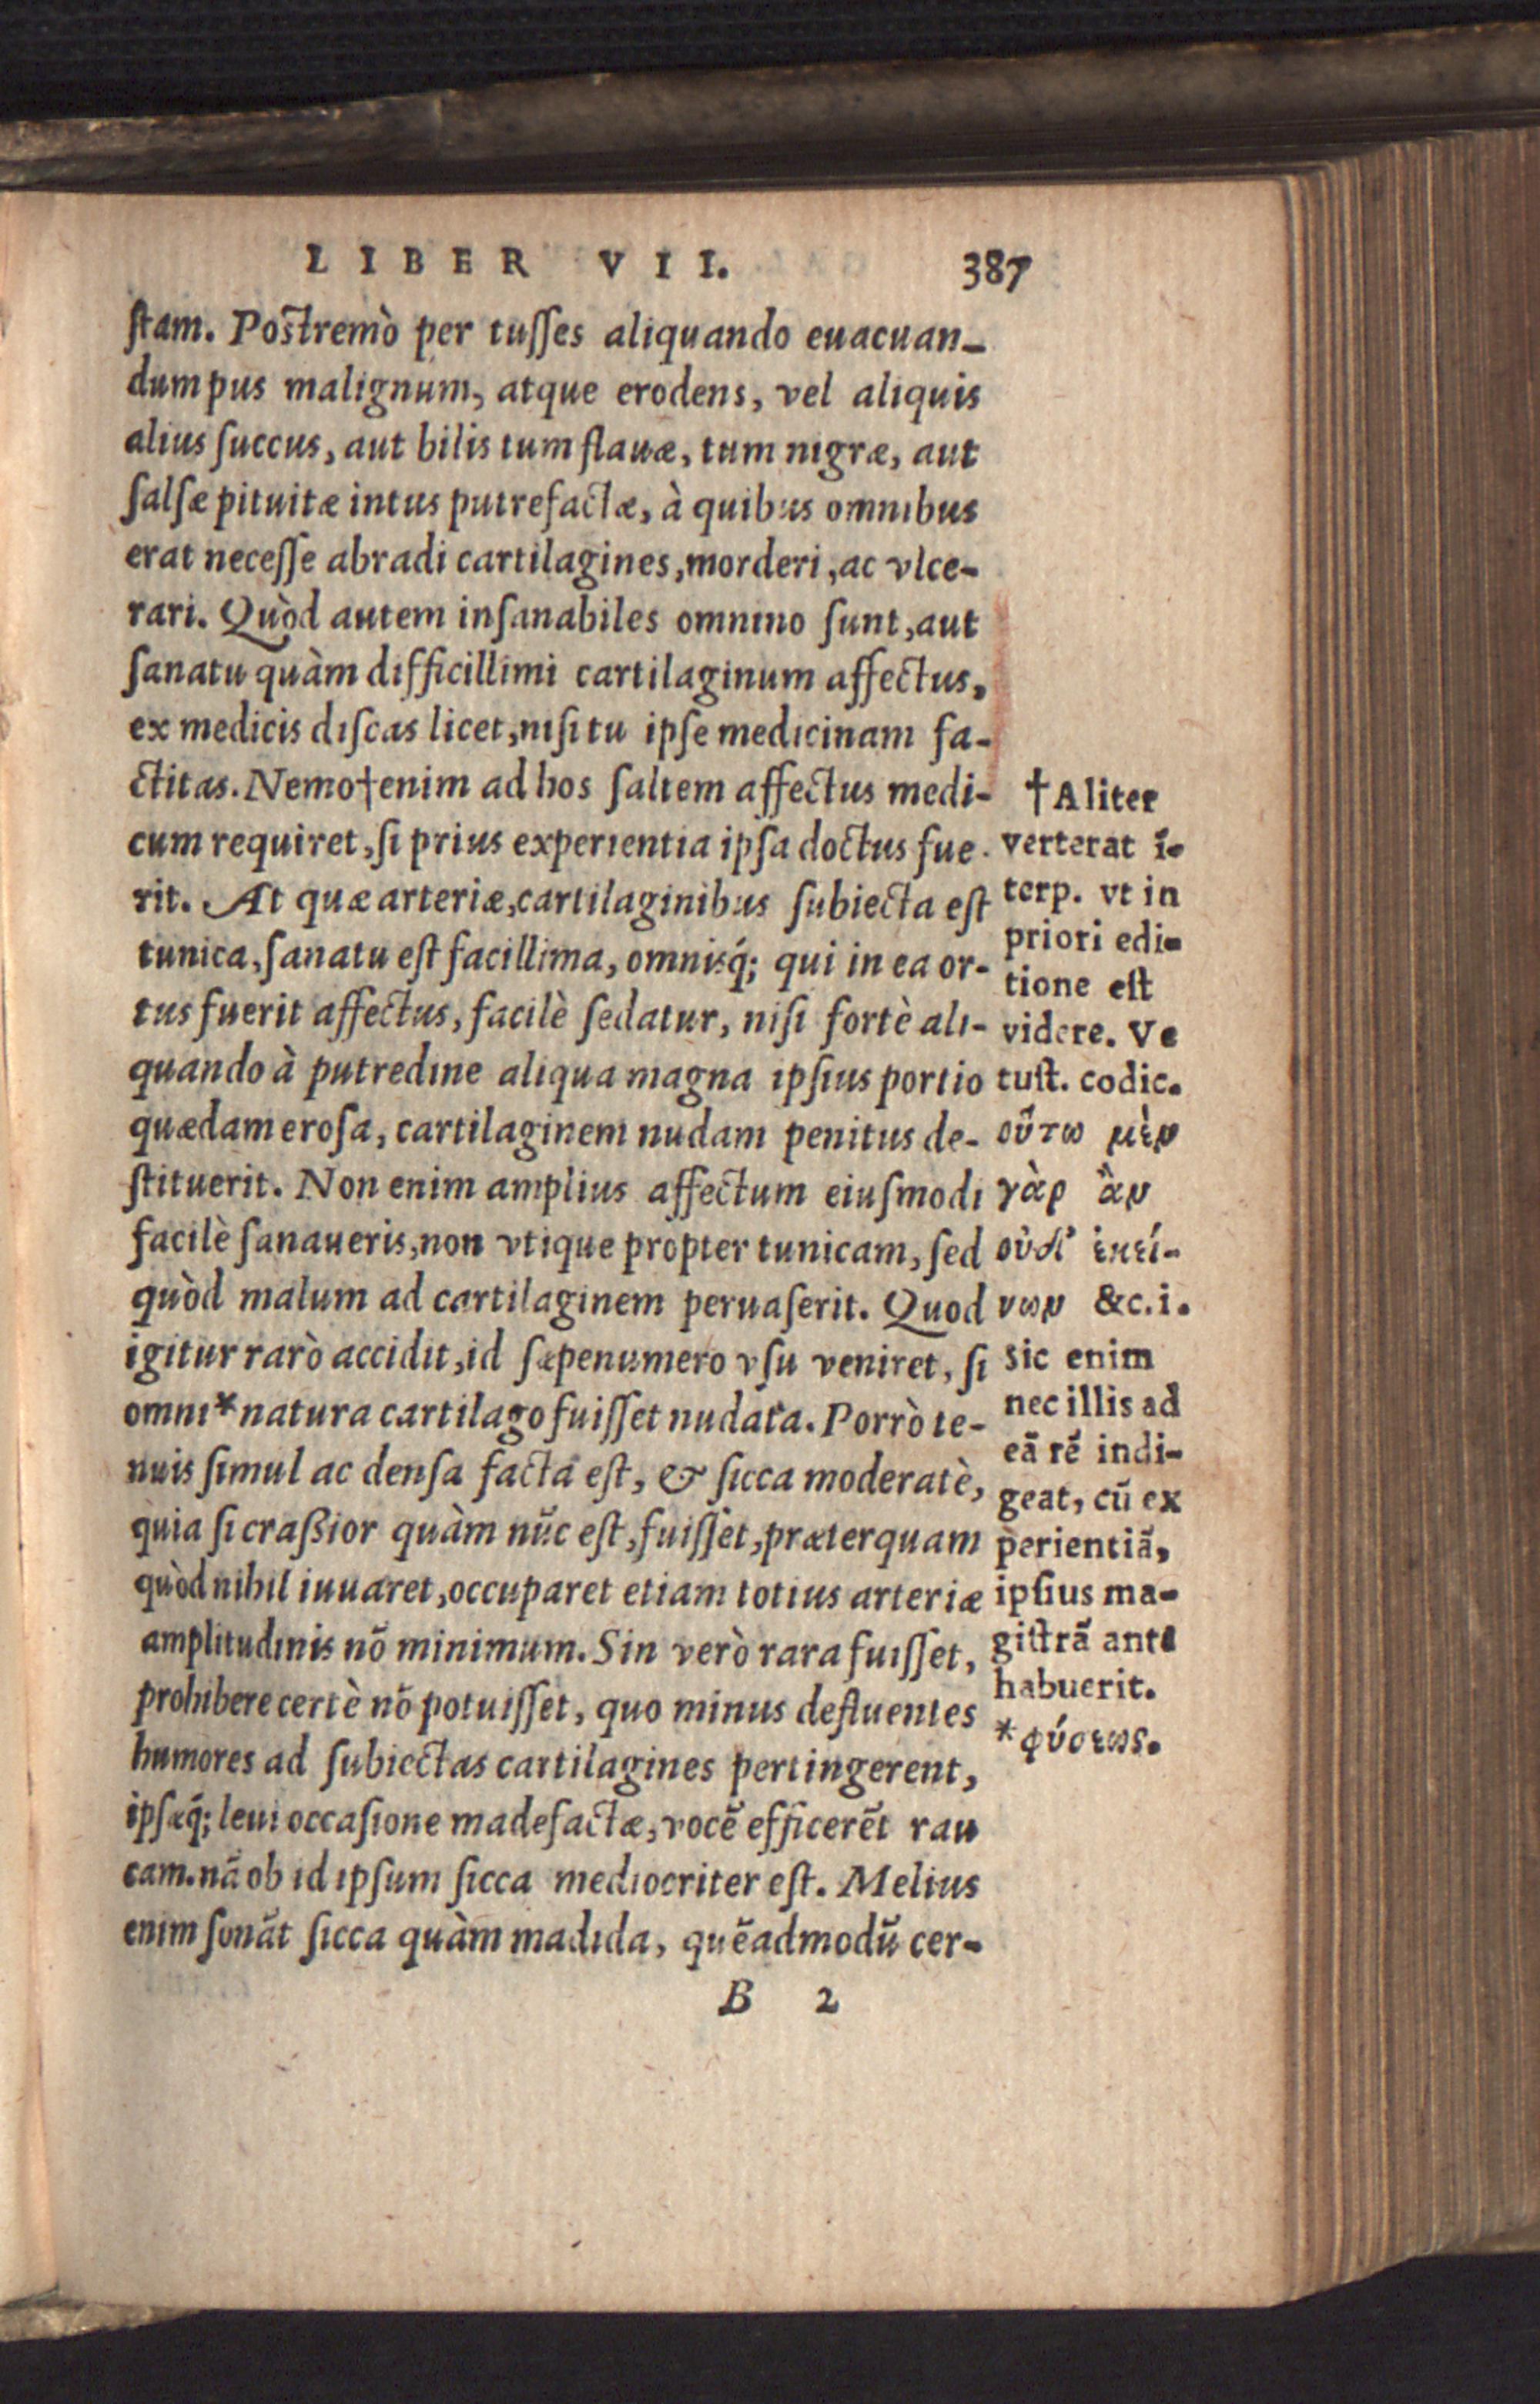 LIBER VII. 387
ſtam. Poſtremò per tuſſes aliquando euacuan-
dum pus malignum, atque erodens, vel aliquis
alius ſuccus, aut bilis tum flauæ, tum nigræ, aut
ſalſæ pituitæ intus putrefactæ, à quibus omnibus
erat neceſſe abradi cartilagines, morderi, ac vlce-
rari. Quòd autem inſanabiles omnino ſunt, aut
ſanatu quàm difficillimi cartilaginum affectus,
ex medicis diſcas licet, niſi tu ipſe medicinam fa-
ctitas. Nemo†enim ad hos ſaltem affectus medi-
cum requiret, ſi prius experientia ipſa doctus fue-
rit. At quæ arteriæ, cartilaginibus ſubiecta eſt
tunica, ſanatu eſt facillima, omnisq́; qui in ea or-
tus fuerit affectus, facilè ſedatur, niſi fortè ali-
quando à putredine aliqua magna ipſius portio
quædam eroſa, cartilaginem nudam penitus de-
ſtituerit. Non enim amplius affectum eiuſmodi
facilè ſanaueris, non vtique propter tunicam, ſed
quòd malum ad cartilaginem peruaſerit. Quod
igitur rarò accidit, id ſæpenumero vſu veniret, ſi
omni*natura cartilago fuiſſet nudata. Porrò te-
nuis ſimul ac denſa facta eſt, & ſicca moderatè,
quia ſi craßior quàm nũc eſt, fuiſſet, præterquam
quòd nihil iuuaret, occuparet etiam totius arteriæ
amplitudinis nõ minimum. Sin verò rara fuiſſet,
prohibere certè nõ potuiſſet, quo minus defluentes
humores ad ſubiectas cartilagines pertingerent,
ipſæq́; leui occaſione madefactæ, vocẽ efficerẽt rau
cam. nã ob id ipſum ſicca mediocriter eſt. Melius
enim ſonãt ſicca quàm madida, quẽadmodũ cer-
B 2
†Aliter
verterat ĩ-
terp. vt in
priori edi-
tione eſt
videre. Ve
tuſt. codic.
οὕτω μὲν
γὰρ ἂν
οὐδ' ἐκεί-
νων &c. i.
Sic enim
nec illis ad
eã rẽ indi-
geat, cũ ex
perientiã,
ipſius ma-
giſtrã ante
habuerit.
*φύσεως.